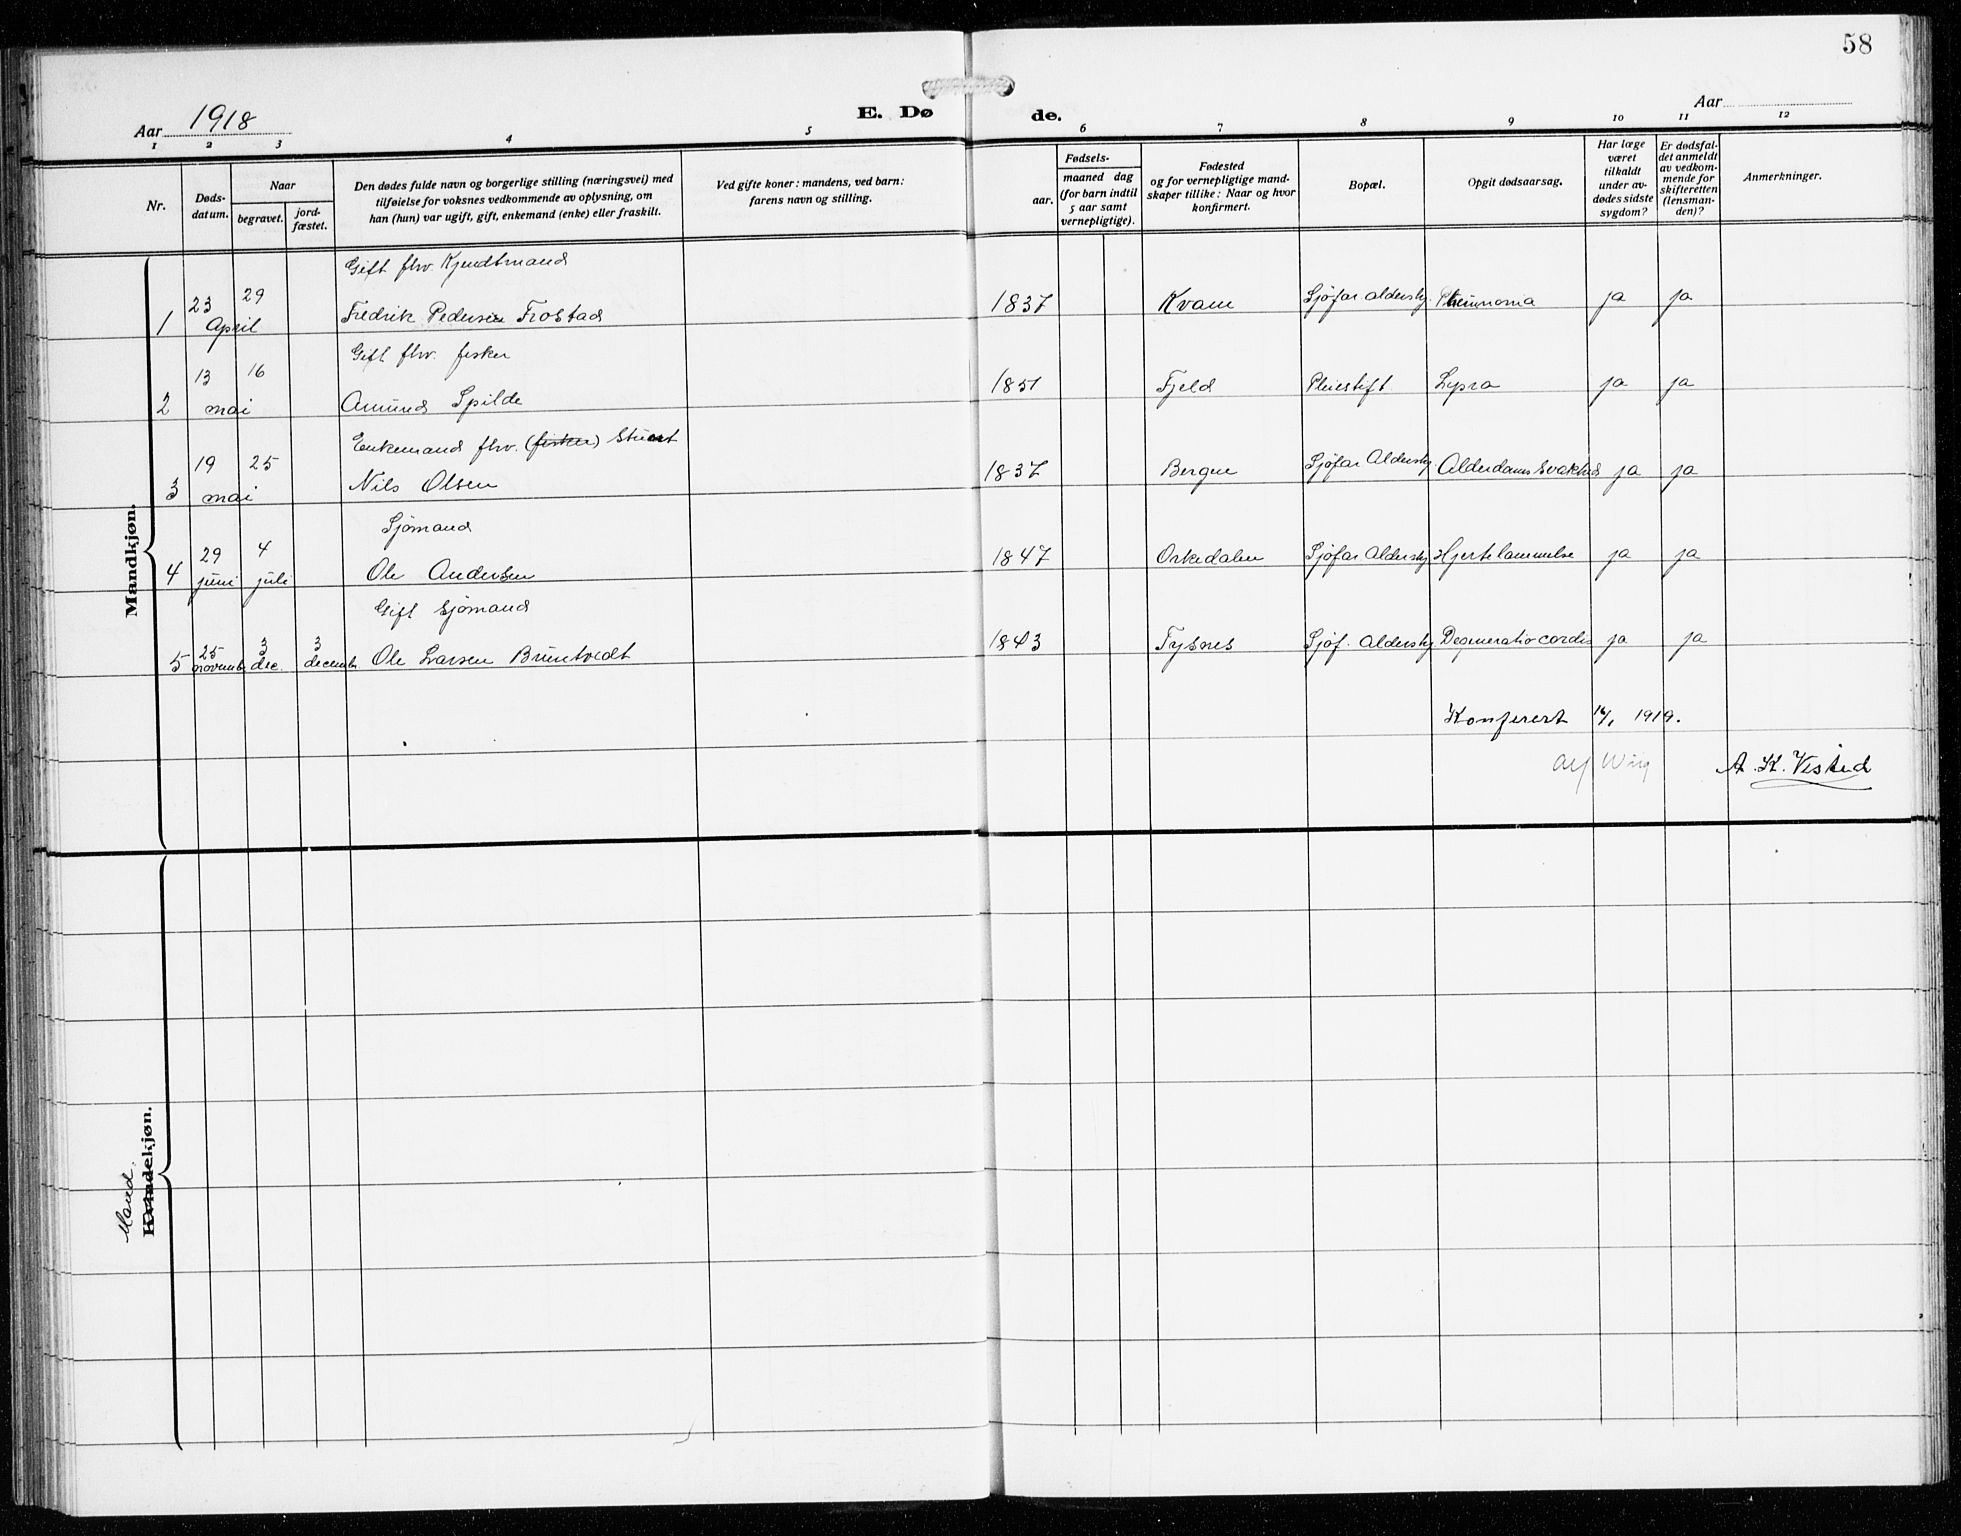 58
Aar 1918
E. Døde.
Aar
1 2 3 4 5 6 7 8 9 10 11 12
Nr.
Døds-
datum.
Naar
begravet.
jord-
fæstet.
Den dødes fulde navn og borgerlige stilling (næringsvei) med
tilføielse for voksnes vedkommende av oplysning, om
han (hun) var ugift, gift, enkemand (enke) eller fraskilt.
Ved gifte koner: mandens, ved barn:
farens navn og stilling.
Fødsels-
aar.
maaned dag
(for barn indtil
5 aar samt
vernepligtige).
Fødested
og for vernepligtige mand-
skaper tillike: Naar og hvor
konfirmert.
Bopæl.
Opgit dødsaarsag.
Har læge
været
tilkaldt
under av-
dødes sidste
sygdom?
Er dødsfal-
det anmeldt
av vedkom-
mende for
skifteretten
(lensman-
den)?
Anmerkninger.
Mandkjøn.
Gift fhv. Kjendtmand
1 23 April 29 Fredrik Pedersen Frostad 1837 Kvam Sjøfar. aldershj. ja ja
Gift fhv. fisker
2 13 mai 16 Amund Spilde 1851 Fjeld Pleiestift Lepra ja ja
Enkemand fhv. (fisker) Stuert
3 19 mai 25 Nils Olsen 1837 Bergen Sjøfar Aldershj Alderdoms svakhed ja ja
Sjømand
4 29 juni 4 juli Ole Andersen 1847 Orkedalen Sjøfar Aldershj Hjertelammelse ja ja
Gift Sjømand
5 25 novembr 3 dec. 3 decembr Ole Larsen Bruntvedt 1843 Tysnes Sjøf. Aldershj Degeneratio cordis ja ja
Konferert 16/1 1919.
A. K. Vistad
Mand.
Kvindekjøn.